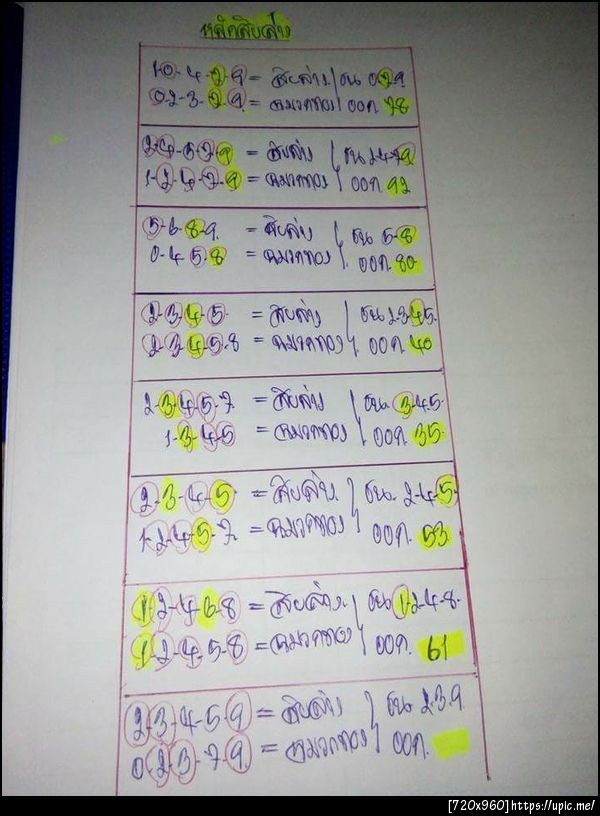 หลักสิบล่าง
1-0-4-2-9 = สิบล่าง ชน 0-2-9
0-2-3-2-9 = หมวกทอง ออก. 28
2-4-5-2-9 = สิบล่าง ชน 2-4-2-9
1-2-4-2-9 = หมวกทอง ออก. 92
5-6-8-9. = สิบล่าง ชน 5-8
0-4-5-8 = หมวกทอง ออก. 80
2-3-4-5. = สิบล่าง ชน 2-3-4-5.
2-3-4-5-8 = หมวกทอง ออก 40
2-3-4-5-7. = สิบล่าง ชน. 3-4-5.
1-3-4-5 = หมวกทอง ออก. 35
2-3-4-5. = สิบล่าง. ชน. 2-4-5.
1-2-4-5-7. = หมวกทอง ออก. 53
1-2-4-6-8 = สิบล่าง. ชน 1-2-4-8.
1-2-4-5-8 = หมวกทอง ออก. 61
2-3-4-5-9 = สิบล่าง ชน 2-3-9
0-2-3-7-9 = หมวกทอง ออก.
[720x960] https://upic.me/